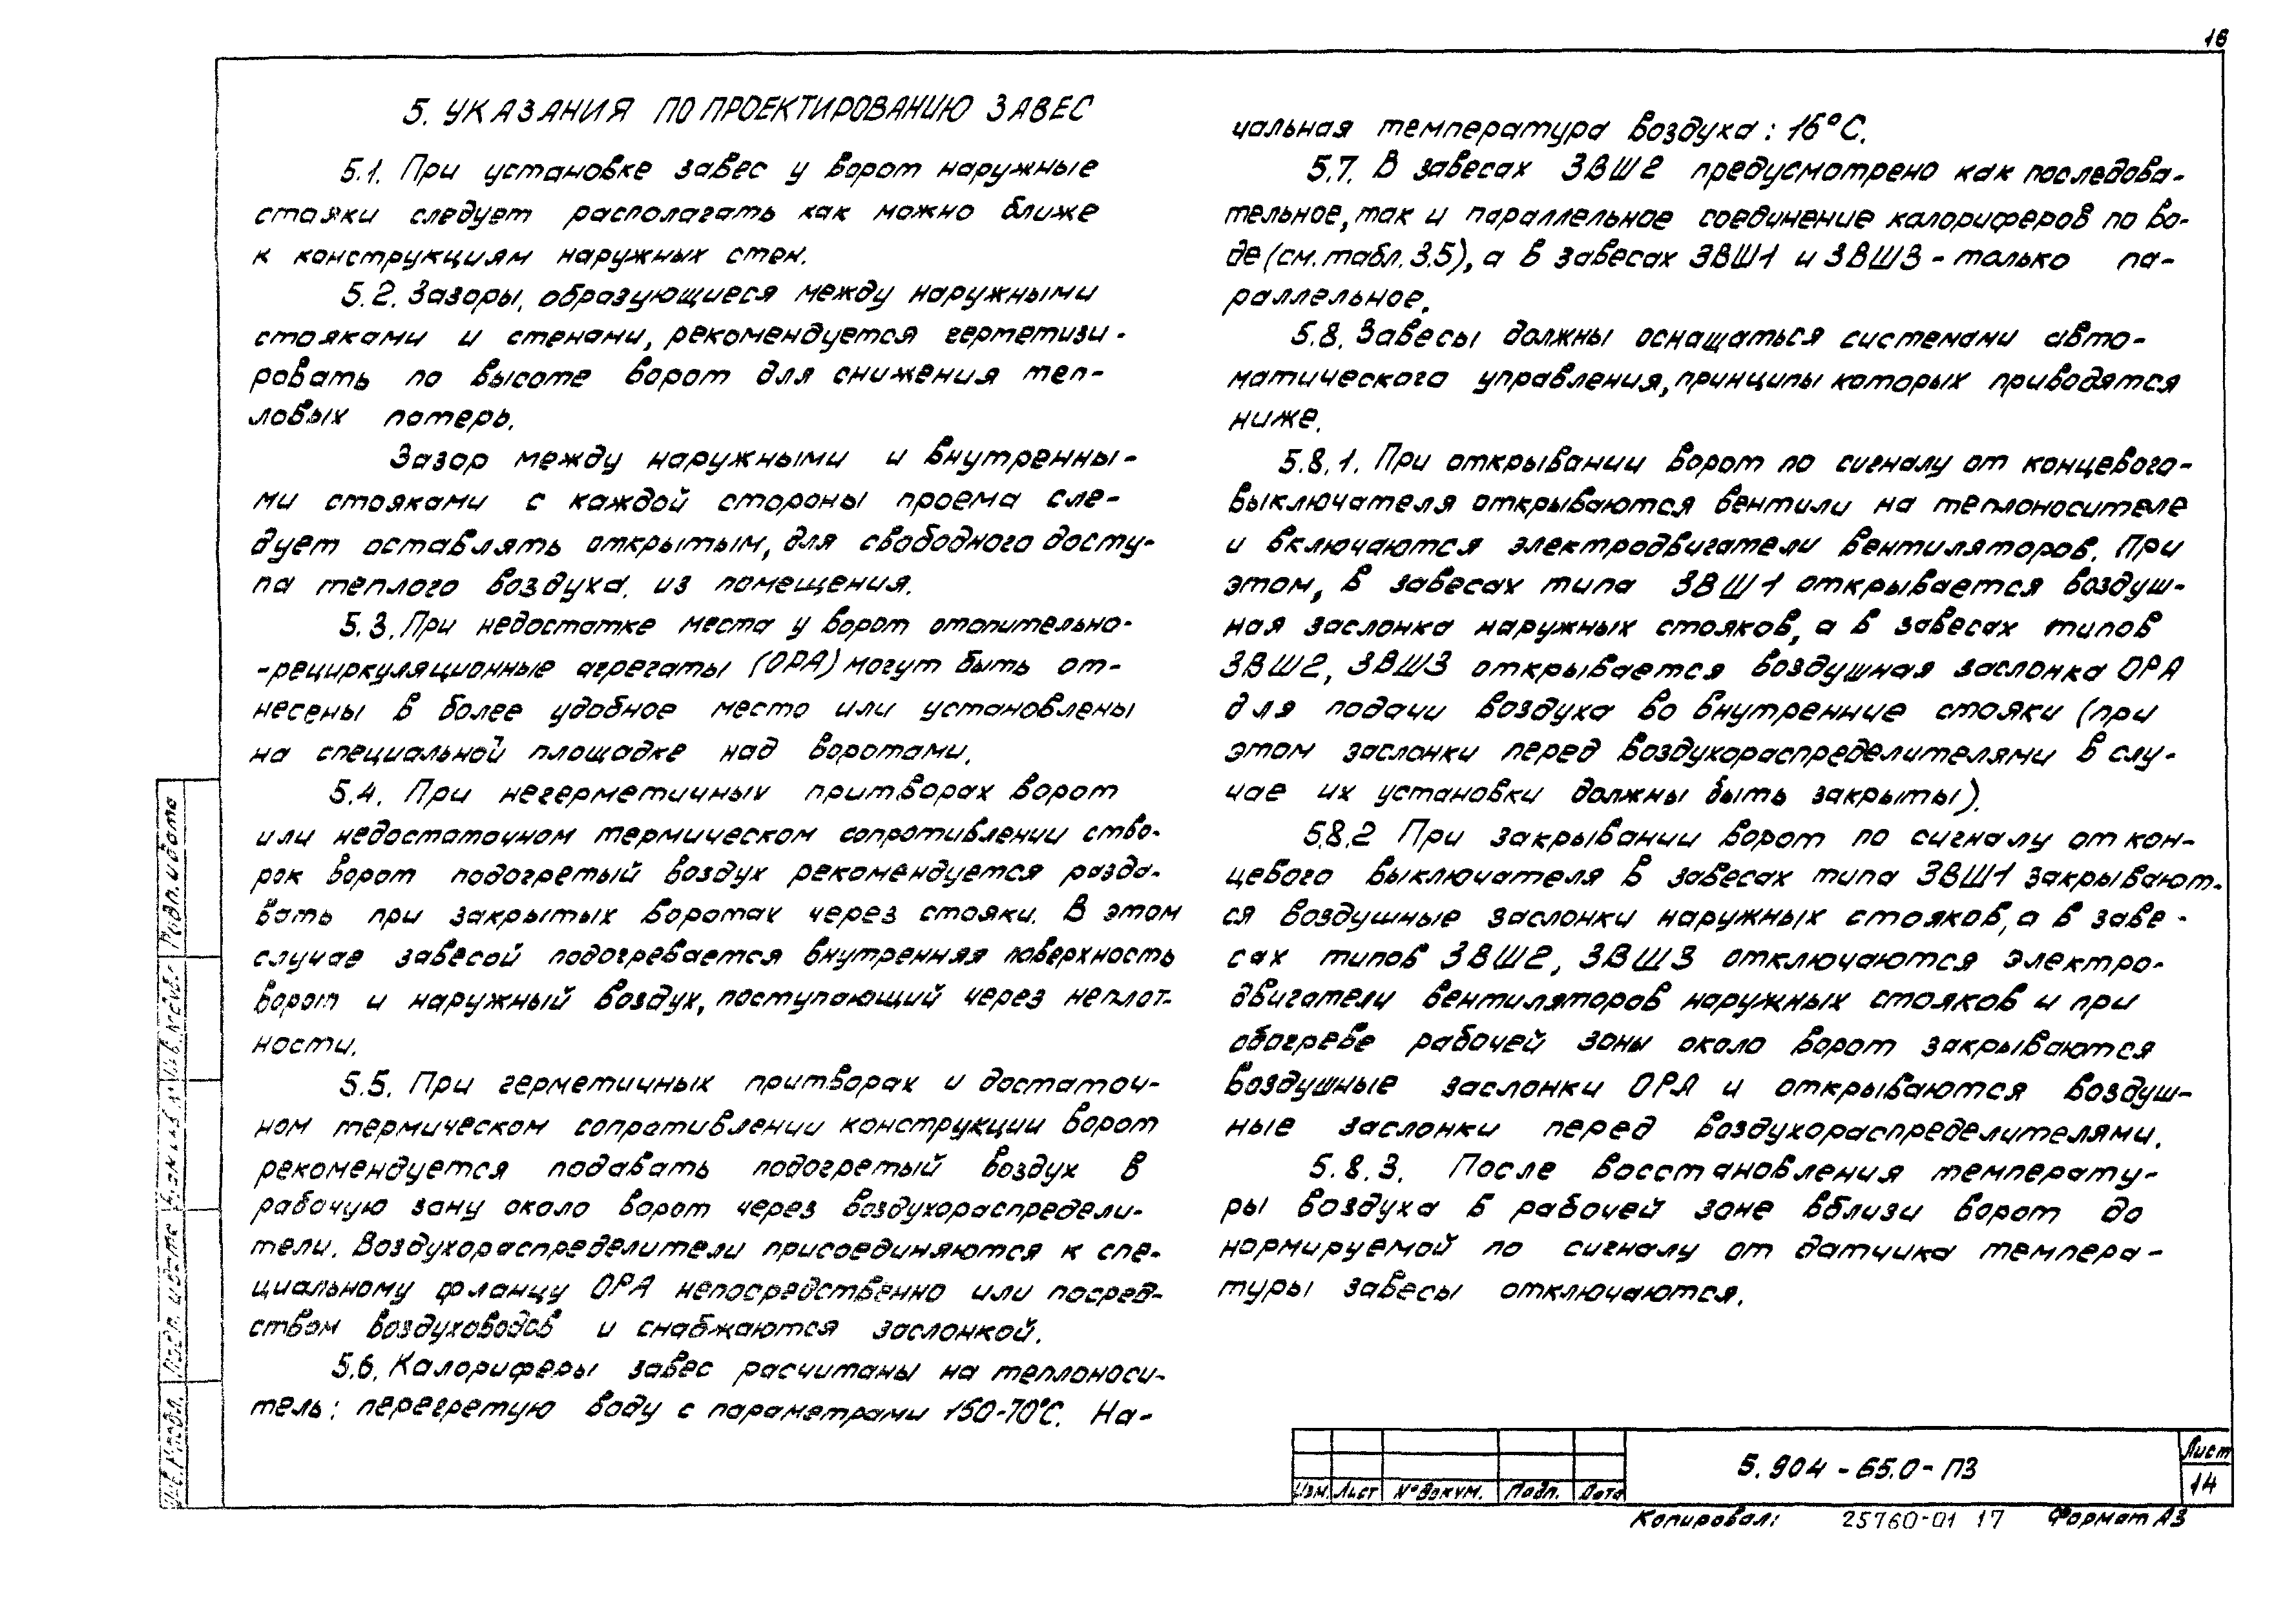 16
5. УКАЗАНИЯ ПО ПРОЕКТИРОВАНИЮ ЗАВЕС
5.1. При установке завес у ворот наружные
стояки следует располагать как можно ближе
к конструкциям наружных стен.
5.2. Зазоры, образующиеся между наружными
стояками и стенами, рекомендуется герметизи-
ровать по высоте ворот для снижения теп-
ловых потерь.
Зазор между наружными и внутренны-
ми стояками с каждой стороны проема сле-
дует оставлять открытым, для свободного досту-
па теплого воздуха из помещения.
5.3. При недостатке места у ворот отопительно-
-рециркуляционные агрегаты (ОРА) могут быть от-
несены в более удобное место или установлены
на специальной площадке над воротами.
5.4. При негерметичных притворах ворот
или недостаточном термическом сопротивлении ство-
рок ворот подогретый воздух рекомендуется разда-
вать при закрытых воротах через стояки. В этом
случае завесой подогревается внутренняя поверхность
ворот и наружный воздух, поступающий через неплот-
ности.
5.5. При герметичных притворах и достаточ-
ном термическом сопротивлении конструкции ворот
рекомендуется подавать подогретый воздух в
рабочую зону около ворот через воздухораспредели-
тели. Воздухораспределители присоединяются к спе-
циальному фланцу ОРА непосредственно или посред-
ством воздуховодов и снабжаются заслонкой.
5.6. Калориферы завес расчитаны на теплоноси-
тель: перегретую воду с параметрами 150-70°С. На-
чальная температура воздуха: 16°С.
5.7. В завесах ЗВШ2 предусмотрено как последова-
тельное, так и параллельное соединение калориферов по во-
де (см. табл. 3.5), а в завесах ЗВШ1 и ЗВШ3 - только па-
раллельное.
5.8. Завесы должны оснащаться системами авто-
матического управления, принципы которых приводятся
ниже.
5.8.1. При открывании ворот по сигналу от концевого-
выключателя открываются вентили на теплоносителе
и включаются электродвигатели вентиляторов. При
этом, в завесах типа ЗВШ1 открывается воздуш-
ная заслонка наружных стояков, а в завесах типов
ЗВШ2, ЗВШ3 открывается воздушная заслонка ОРА
для подачи воздуха во внутренние стояки (при
этом заслонки перед воздухораспределителями в слу-
чае их установки должны быть закрыты).
5.8.2 При закрывании ворот по сигналу от кон-
цевого выключателя в завесах типа ЗВШ1 закрывают-
ся воздушные заслонки наружных стояков, а в заве-
сах типов ЗВШ2, ЗВШ3 отключаются электро-
двигатели вентиляторов наружных стояков и при
обогреве рабочей зоны около ворот закрываются
воздушные заслонки ОРА и открываются воздуш-
ные заслонки перед воздухораспределителями.
5.8.3. После восстановления температу-
ры воздуха в рабочей зоне вблизи ворот до
нормируемой по сигналу от датчика темпера-
туры завесы отключаются.
Подп. и дата
Подп. и дата
Изм. Лист № докум. Подп. Дата
5.904-65.0-ПЗ
Лист
14
Копировал: 25760-01 17 Формат А3